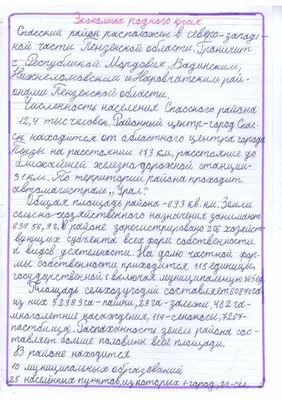 Экономика родного края
Спасский район расположен в северо-запад-
ной части Пензенской области. Граничит
с Республикой Мордовия, Вадинским,
Нижнеломовским и Наровчатским рай-
онами Пензенской области.
Численность населения Спасского района
12,4 тыс человек. Районный центр-город Спас-
ск находится от областного центра города
Пензы на расстоянии 175 км, расстояние до
ближайшей железно-дорожной станции-
По территории района проходит
автомагистраль „Урал".
Общая площадь района-693 кв. км. Земли
сельско-хозяйственного назначения занимают
В районе зарегистрировано 206 хозяйст-
вующих субъекта всех форм собственности
и видов деятельности. На долю частной фор-
мы собственности приходится 115 единиц,
государственной с включая муниципальную
Площадь сельхозугодий составляет
из них 52983 га-пашни, га-залежи, 482 га-
многолетние насаждения, 114-сенокосы, 7267-
пастбища. Распаханность земель района сос-
тавляет больше половины всей площади.
В районе находится
10 муниципальных образований
25 населённых пунктов, из которых 1-город, 20-сёл